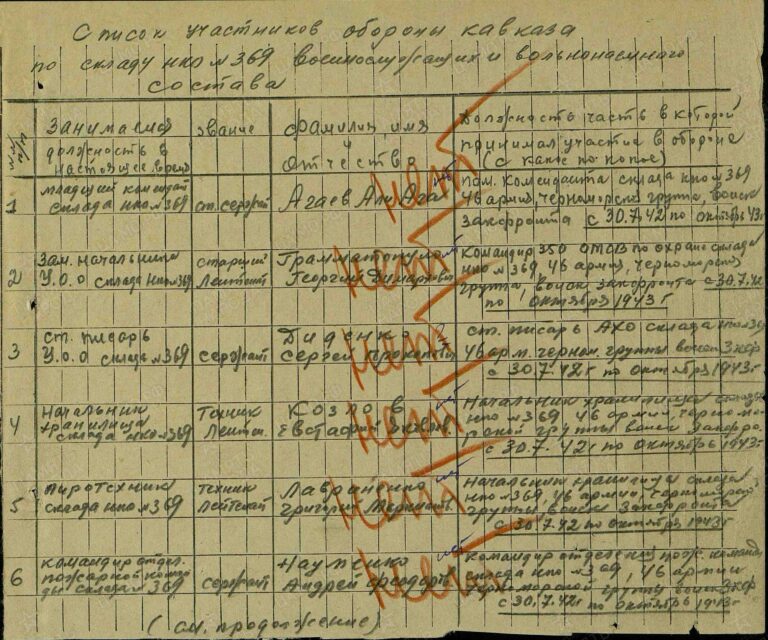 Список участников обороны кавказа
по складу нко № 369 военнослужащих и вольнонаемного
состава
Занимаемая
должность в
настоящее время
звание
фамилия, имя
отчество
Должность часть в которой
принимал участие в обороне
(с какое по какое)
1
младший комендант
склада нко № 369
ст. сержант
Агаев Али Ага
пом. Коменданта склада нко № 369
46 армии, черноморск группа, войск
закфронта с 30.7.42 по октябрь 43г
нет
2
Зам. начальника
У.О.О склада нко № 369
старший
Лейтенант
Георгий
Командир 350 по охране склада
нко № 369, 46 армия, черноморск
группа, войск закфронта с 30.7.42
по октября 1943г
нет
3
ст. писарь
У.О.О склада № 369
сержант
Диденко
Сергей Прокопович
ст. писарь АХО склада нко № 369
46 арм. черном. группы войск Зкфр
с 30.7.42г по октября 1943г
нет
4
Начальник
хранилища
склада нко № 369
техник
Лейтен.
Козлов
Евстафий
Начальник хранилища склада
нко № 369 46 армии, черномо-
рской группы войск Закфро.
с 30.7.42г по октябрь 1943г
нет
5
пиротехник
склада нко № 369
техник
Лейтенант
Лавриненко
григорий
Начальник хранилища склада
нко № 369, 46 армии, черноморской
группы войск Закфронта
с 30.7.42 по октября 1943г
нет
6
командир отдел.
пожарной коман-
ды склада № 369
сержант
Науменко
Андрей Федоров
командир отделения пож. команд
склада нко № 369, 46 армии
черноморской группы войск Зкфр
с 30.7.42г по октября 1943г
нет
(см. продолжение)